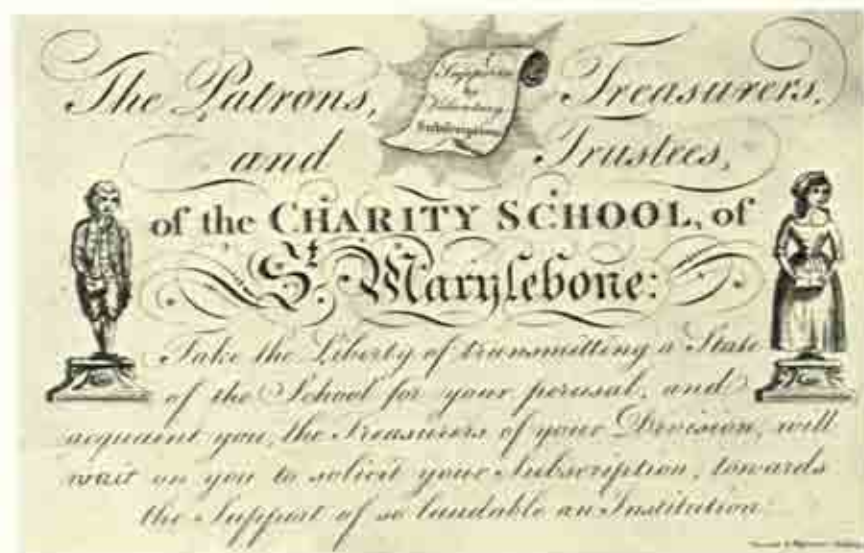 Supported
by
Voluntary
Subscription
The Patrons, Treasurers,
and Trustees,
of the CHARITY SCHOOL, of
St. Marylebone:
Take the Liberty of transmitting a State
of the School for your perusal, and
acquaint you, the Treasurers of your Division, will
wait on you to solicit your Subscription, towards
the Support of so laudable an Institution